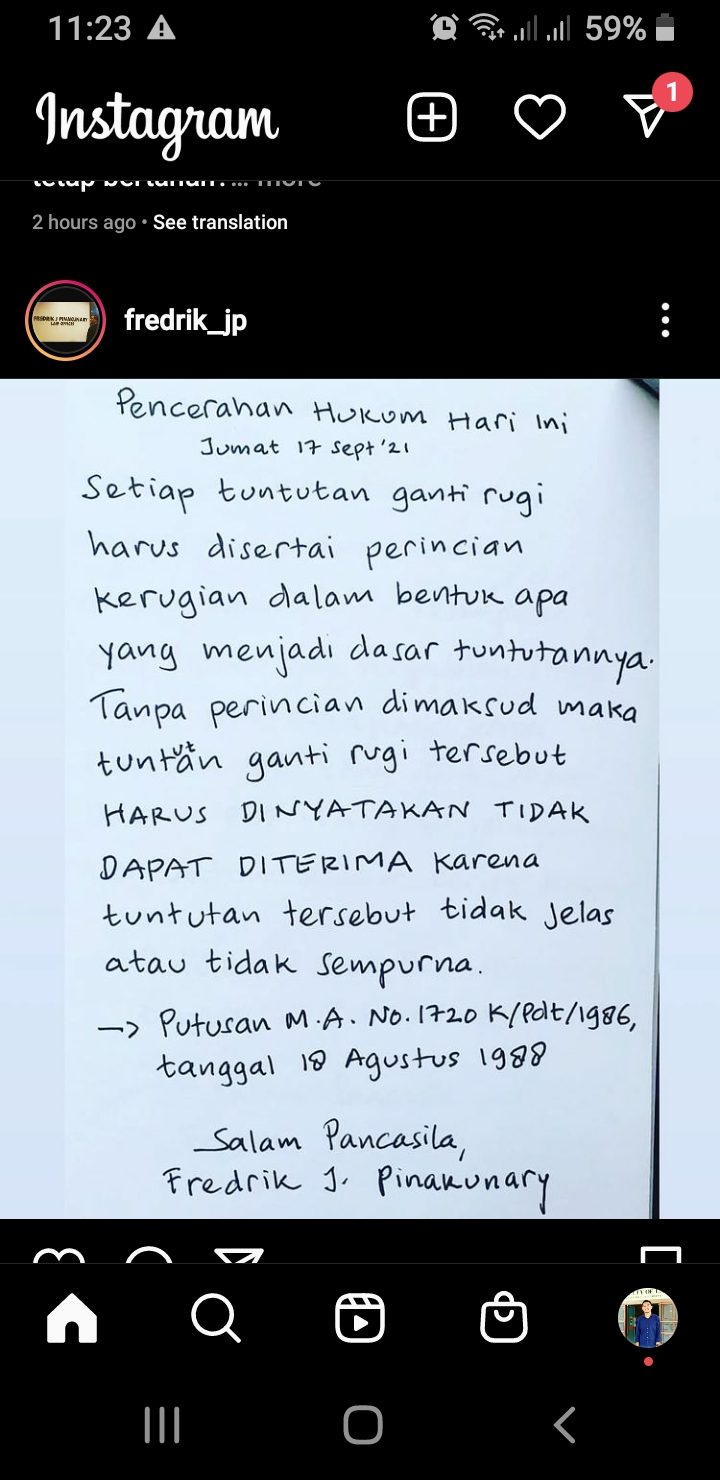 11:23 59%
Instagram 1
tetap bertahan?... more
2 hours ago • See translation
FREDRIK J PINAKUNARY
LAW OFFICES
fredrik_jp
Pencerahan Hukum Hari Ini
Jumat 17 Sept '21
Setiap tuntutan ganti rugi
harus disertai perincian
kerugian dalam bentuk apa
yang menjadi dasar tuntutannya.
Tanpa perincian dimaksud maka
tuntutan ganti rugi tersebut
HARUS DINYATAKAN TIDAK
DAPAT DITERIMA karena
tuntutan tersebut tidak jelas
atau tidak sempurna.
—> Putusan M.A. No. 1720 K/Pdt/1986,
tanggal 18 Agustus 1988
Salam Pancasila,
Fredrik J. Pinakunary